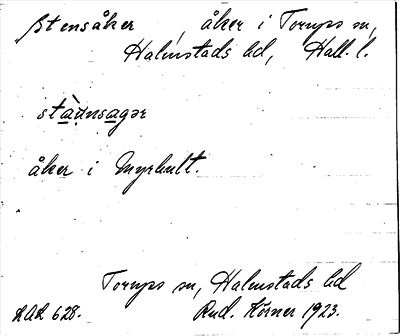 Stensåker, åker i Torups sn,
Halmstads hd, Hall. l.
stàu̇nsagər
åker i Myrhult.
Torups sn, Halmstads hd
LAL 628. Rud. Körner 1923.